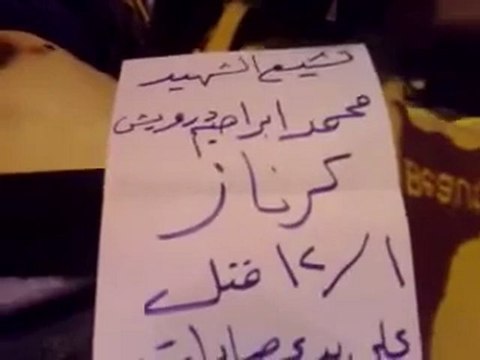 تشيع الشهيد
محمد ابراهيم درويش
كرناز
١٢/١ قتل
على يدي عصابات
Beau